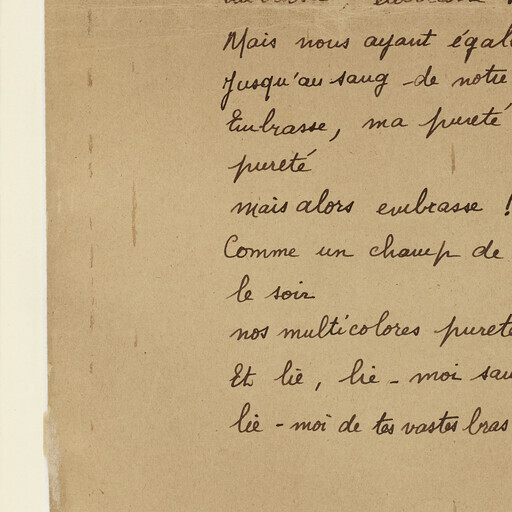 Mais nous ayant égal
Jusqu'au sang de notre
Embrasse, ma pureté
pureté
mais alors embrasse !
Comme un champ de
le soir
nos multicolores pureté
Et lie, lie-moi sau
lie-moi de tes vastes bras